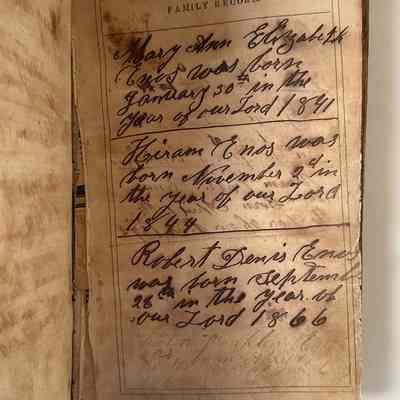 FAMILY RECORD
Mary Ann Elizabeth
Enos was born
January 30th in the
year of our Lord 1841
Hiram Enos was
born November 2d in
the year of our Lord
1844
Robert Denis Enos
was born Septemb
28th in the year of
our Lord 1866